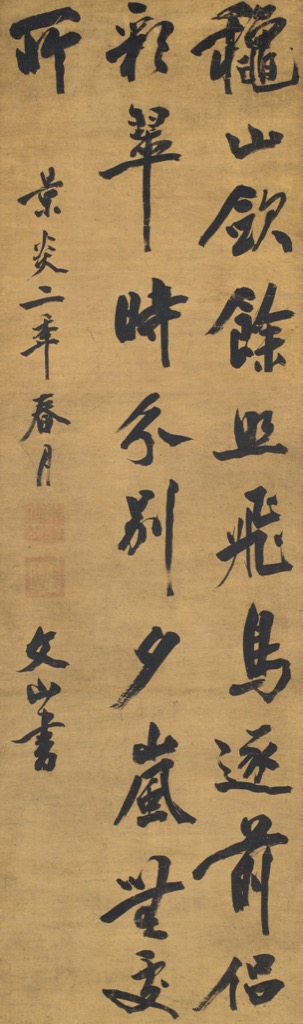 龝山歛餘照飛鳥逐前侣
彩翠時分別夕嵐無處
所
景炎二年春月
文山書